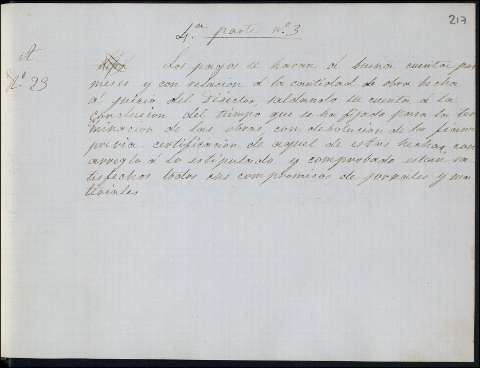 217
4.ª parte n.º 3
A.
N.º 23
Los pagos se haran á buena cuenta por
meses y con relacion á la cantidad de obra hecha
á juicio del Director, saldando se cuenta á la
conclusion del tiempo que se ha fijado para la ter
minacion de las obras, con devolucion de la fianza
previa certificación de aquel de estar hechas con
arreglo á lo estipulado y comprobado esten sa
tisfechos todos sus compromisos de jornales y ma
teriales